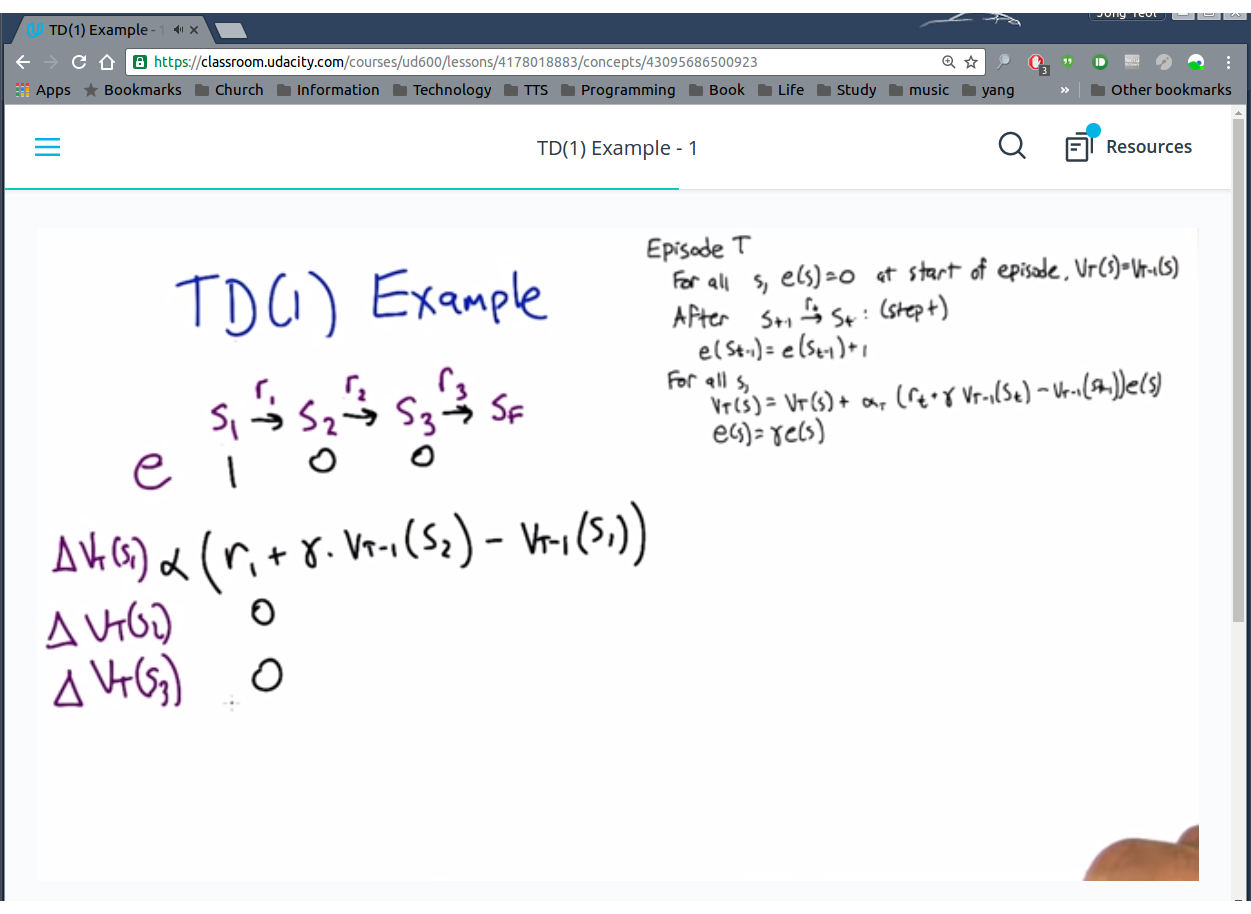 TD(1) Example - 1
Jong Yeol
https://classroom.udacity.com/courses/ud600/lessons/4178018883/concepts/43095686500923
3
Apps Bookmarks Church Information Technology TTS Programming Book Life Study music yang » Other bookmarks
TD(1) Example - 1
Resources
TD(1) Example
S₁ →r₁ S₂ →r₂ S₃ →r₃ SF
e 1 0 0
ΔVT(S₁) α(r₁ + γ · VT-1(S₂) - VT-1(S₁))
ΔVT(S₂) 0
ΔVT(S₃) 0
Episode T
For all s, e(s)=0 at start of episode, VT(s)=VT-1(s)
After St-1 →rt St : (step t)
e(St-1) = e(St-1)+1
For all s,
VT(s) = VT(s) + αT (rt + γ VT-1(St) - VT-1(St-1))e(s)
e(s) = γe(s)